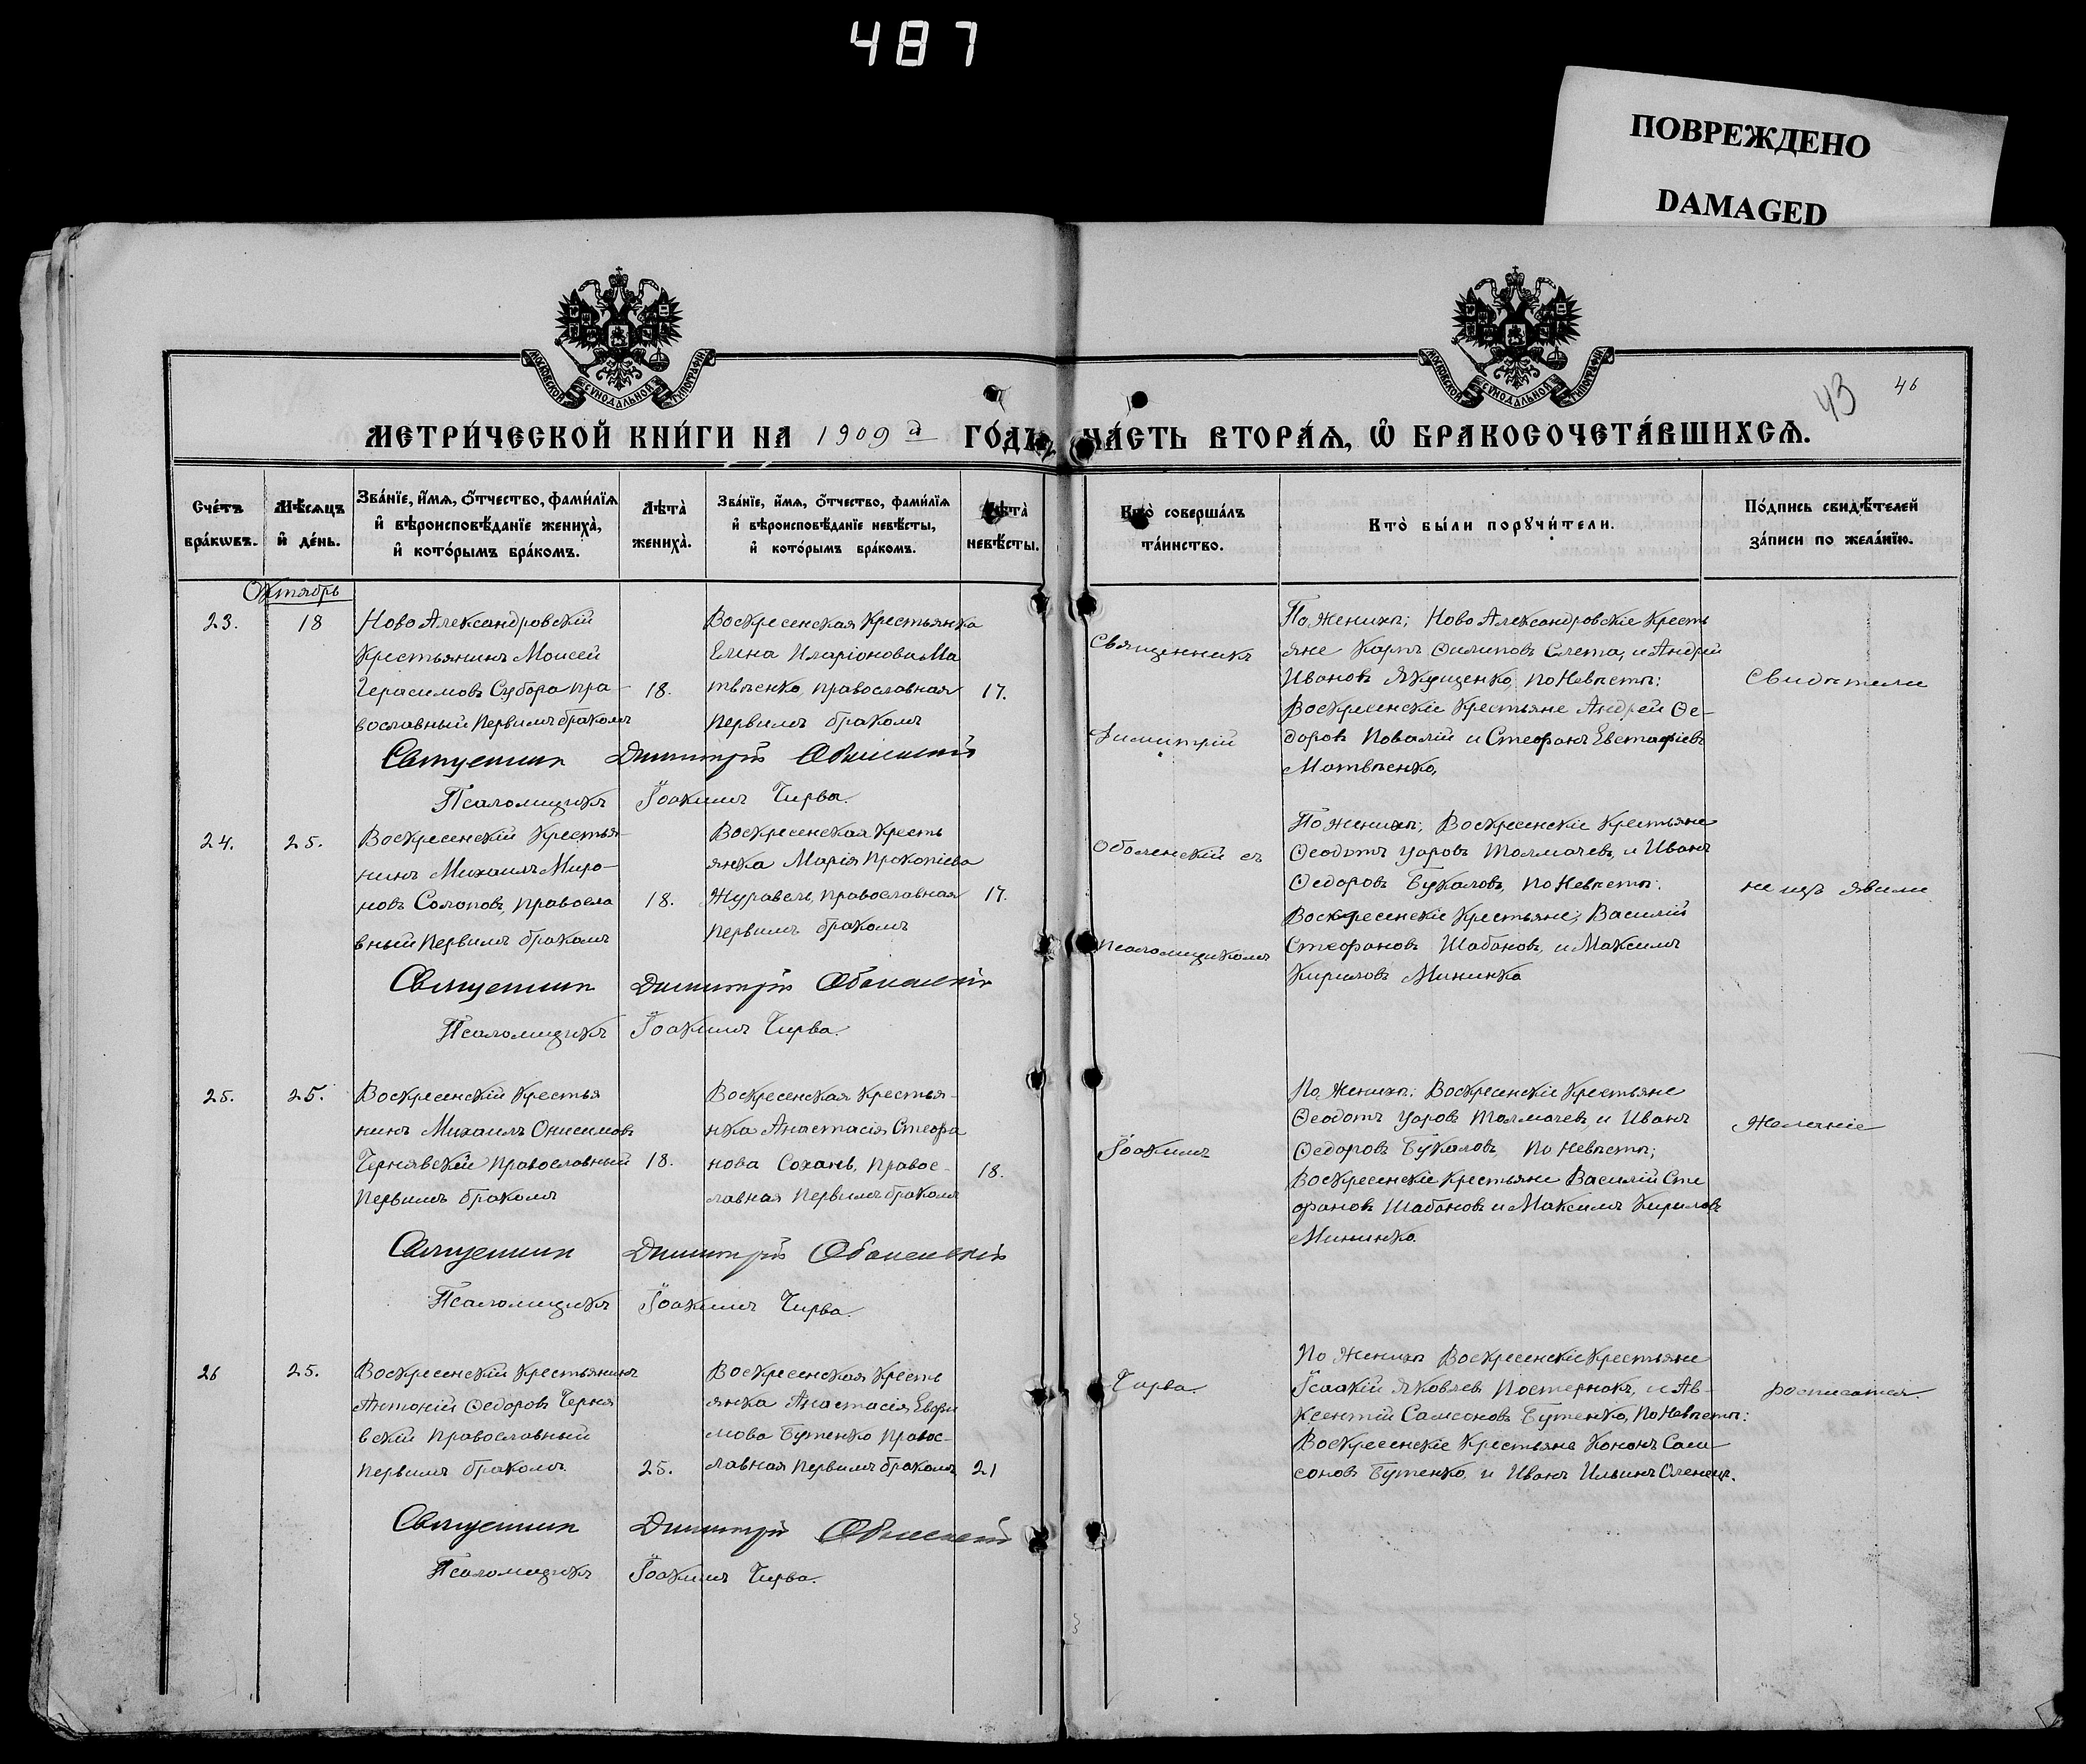 487
ПОВРЕЖДЕНО
DAMAGED
МОСКОВСКОЙ СѴНОДАЛЬНОЙ ТИПОГРАФІИ
МОСКОВСКОЙ СѴНОДАЛЬНОЙ ТИПОГРАФІИ
43 46
МЕТРИ́ЧЕСКОЙ КНИ́ГИ НА 1909 й ГО́ДЪ, ЧА́СТЬ ВТОРА́Ѧ, Ѽ БРАКОСОЧЕТА́ВШИХСѦ.
Сче́тъ
бра́кѡвъ.
Мѣ́сѧцъ
и҆ де́нь.
Зва́нїе, и҆́мѧ, ѻ҆́тчество, фами́лїѧ
и҆ вѣроисповѣ́данїе жениха̀,
и҆ кото́рымъ бра́комъ.
Лѣ́та̀
жениха̀.
Зва́нїе, и҆́мѧ, ѻ҆́тчество, фами́лїѧ
и҆ вѣроисповѣ́данїе невѣ́сты,
и҆ кото́рымъ бра́комъ.
Лѣ́та̀
невѣ́сты.
Кто̀ соверша́лъ
та́инство.
Кто̀ бы́ли порꙋчи́тели.
По́дпись свидѣ́телей
за́писи по жела́нїю.
Октябрь
23.
18
Ново Александровскій
Крестьянинъ Моисей
Герасимовъ Субора пра-
вославный первымъ бракомъ
18.
Воскресенская Крестьянка
Елена Иларіонова Ма
твѣенко, православная
первымъ бракомъ
17.
Священникъ
Димитрій
По женихѣ; Ново Александровскіе Кресть
яне Карпъ Филиповъ Слета, и Андрей
Ивановъ Якущенко, по Невѣстѣ:
Воскресенскіе Крестьяне Андрей Ѳе-
доровъ Повалій и Стефанъ Евстафіевъ
Матвѣенко,
Свидѣтели
Священникъ Димитрій Оболенскій
Псаломщикъ Іоакимъ Чирва.
24.
25.
Воскресенскій Крестья-
нинъ Михаилъ Миро-
новъ Солоповъ, правосла
вный первымъ бракомъ
18.
Воскресенская Кресть
янка Марія Прокопіева
Журавель, православная
первымъ бракомъ
17.
Оболенскій съ
псаломщикомъ
По женихѣ; Воскресенскіе Крестьяне
Ѳеодотъ Уаровъ Толмачевъ, и Иванъ
Ѳедоровъ Букаловъ, по Невѣстѣ:
Воскресенскіе Крестьяне; Василій
Стефановъ Шабановъ, и Максимъ
Кириловъ Мининко
не изъ явили
Священникъ Димитрій Оболенскій
Псаломщикъ Іоакимъ Чирва.
25.
25.
Воскресенскій Крестья
нинъ Михаилъ Онисимовъ
Чернявскій православный
первымъ бракомъ
18.
Воскресенская Крестья-
нка Анастасія Стефа
нова Сохань, правос-
лавная первымъ бракомъ
18.
Іоакимъ
По женихѣ: Воскресенскіе Крестьяне
Ѳеодотъ Уаровъ Толмачевъ и Иванъ
Ѳедоровъ Букаловъ, по Невѣстѣ;
Воскресенскіе Крестьяне Василій Сте
фановъ Шабановъ и Максимъ Кириловъ
Мининко.
желаніе
Священникъ Димитрій Оболенскій
Псаломщикъ Іоакимъ Чирва.
26
25.
Воскресенскій Крестьянинъ
Антоній Ѳедоровъ Черня
вскій православный
первымъ бракомъ.
25.
Воскресенская Кресть
янка Анастасія Евфи
мова Бутенко правос-
лавная первымъ бракомъ
21
Чирва.
По женихѣ Воскресенскіе Крестьяне
Ісаакій Яковлевъ Постернакъ, и Ав-
ксентій Самсоновъ Бутенко, по Невѣстѣ:
Воскресенскіе Крестьяне Кононъ Сам
соновъ Бутенко, и Иванъ Ильинъ Оленецъ.
росписатся
Священникъ Димитрій Оболенскій
Псаломщикъ Іоакимъ Чирва.